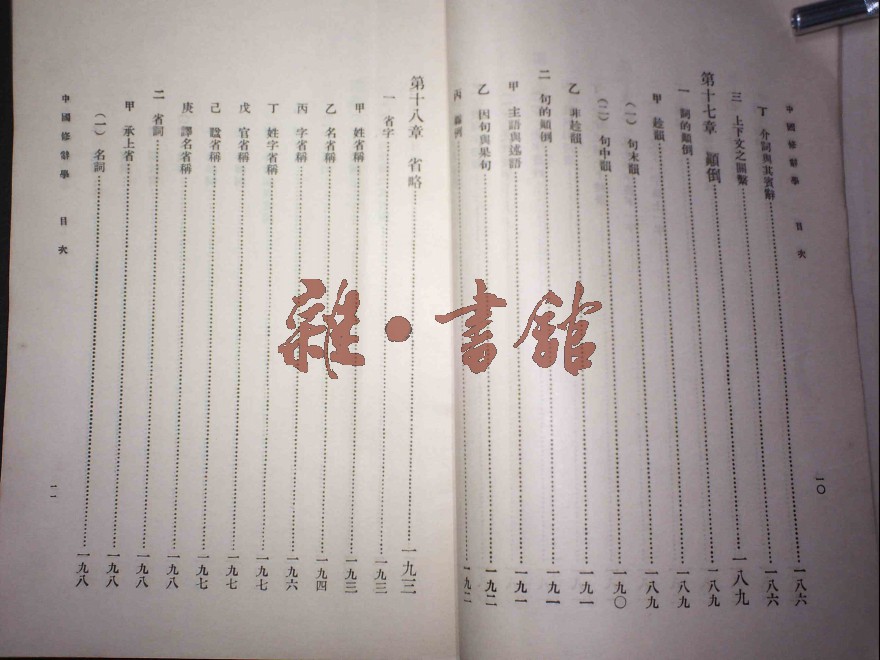 中國修辭學　目次
丁　介詞與其賓辭……一八六
三　上下文之關繫……一八六
第十七章　顚倒……一八九
一　詞的顚倒……一八九
甲　趁韻……一八九
(一)　句末韻……一八九
(二)　句中韻……一九〇
乙　非趁韻……一九一
二　句的顚倒……一九一
甲　主語與述語……一九一
乙　因句與果句……一九二
丙
一〇
第十八章　省略……一九三
一　省字……一九三
甲　姓省稱……一九三
乙　名省稱……一九四
丙　字省稱……一九六
丁　姓字省稱……一九七
戊　官省稱……一九七
己　諡省稱……一九七
庚　譯名省稱……一九八
二　省詞……一九八
甲　承上省……一九八
(一)　名詞……一九八
中國修辭學　目次
一一
雜·書館